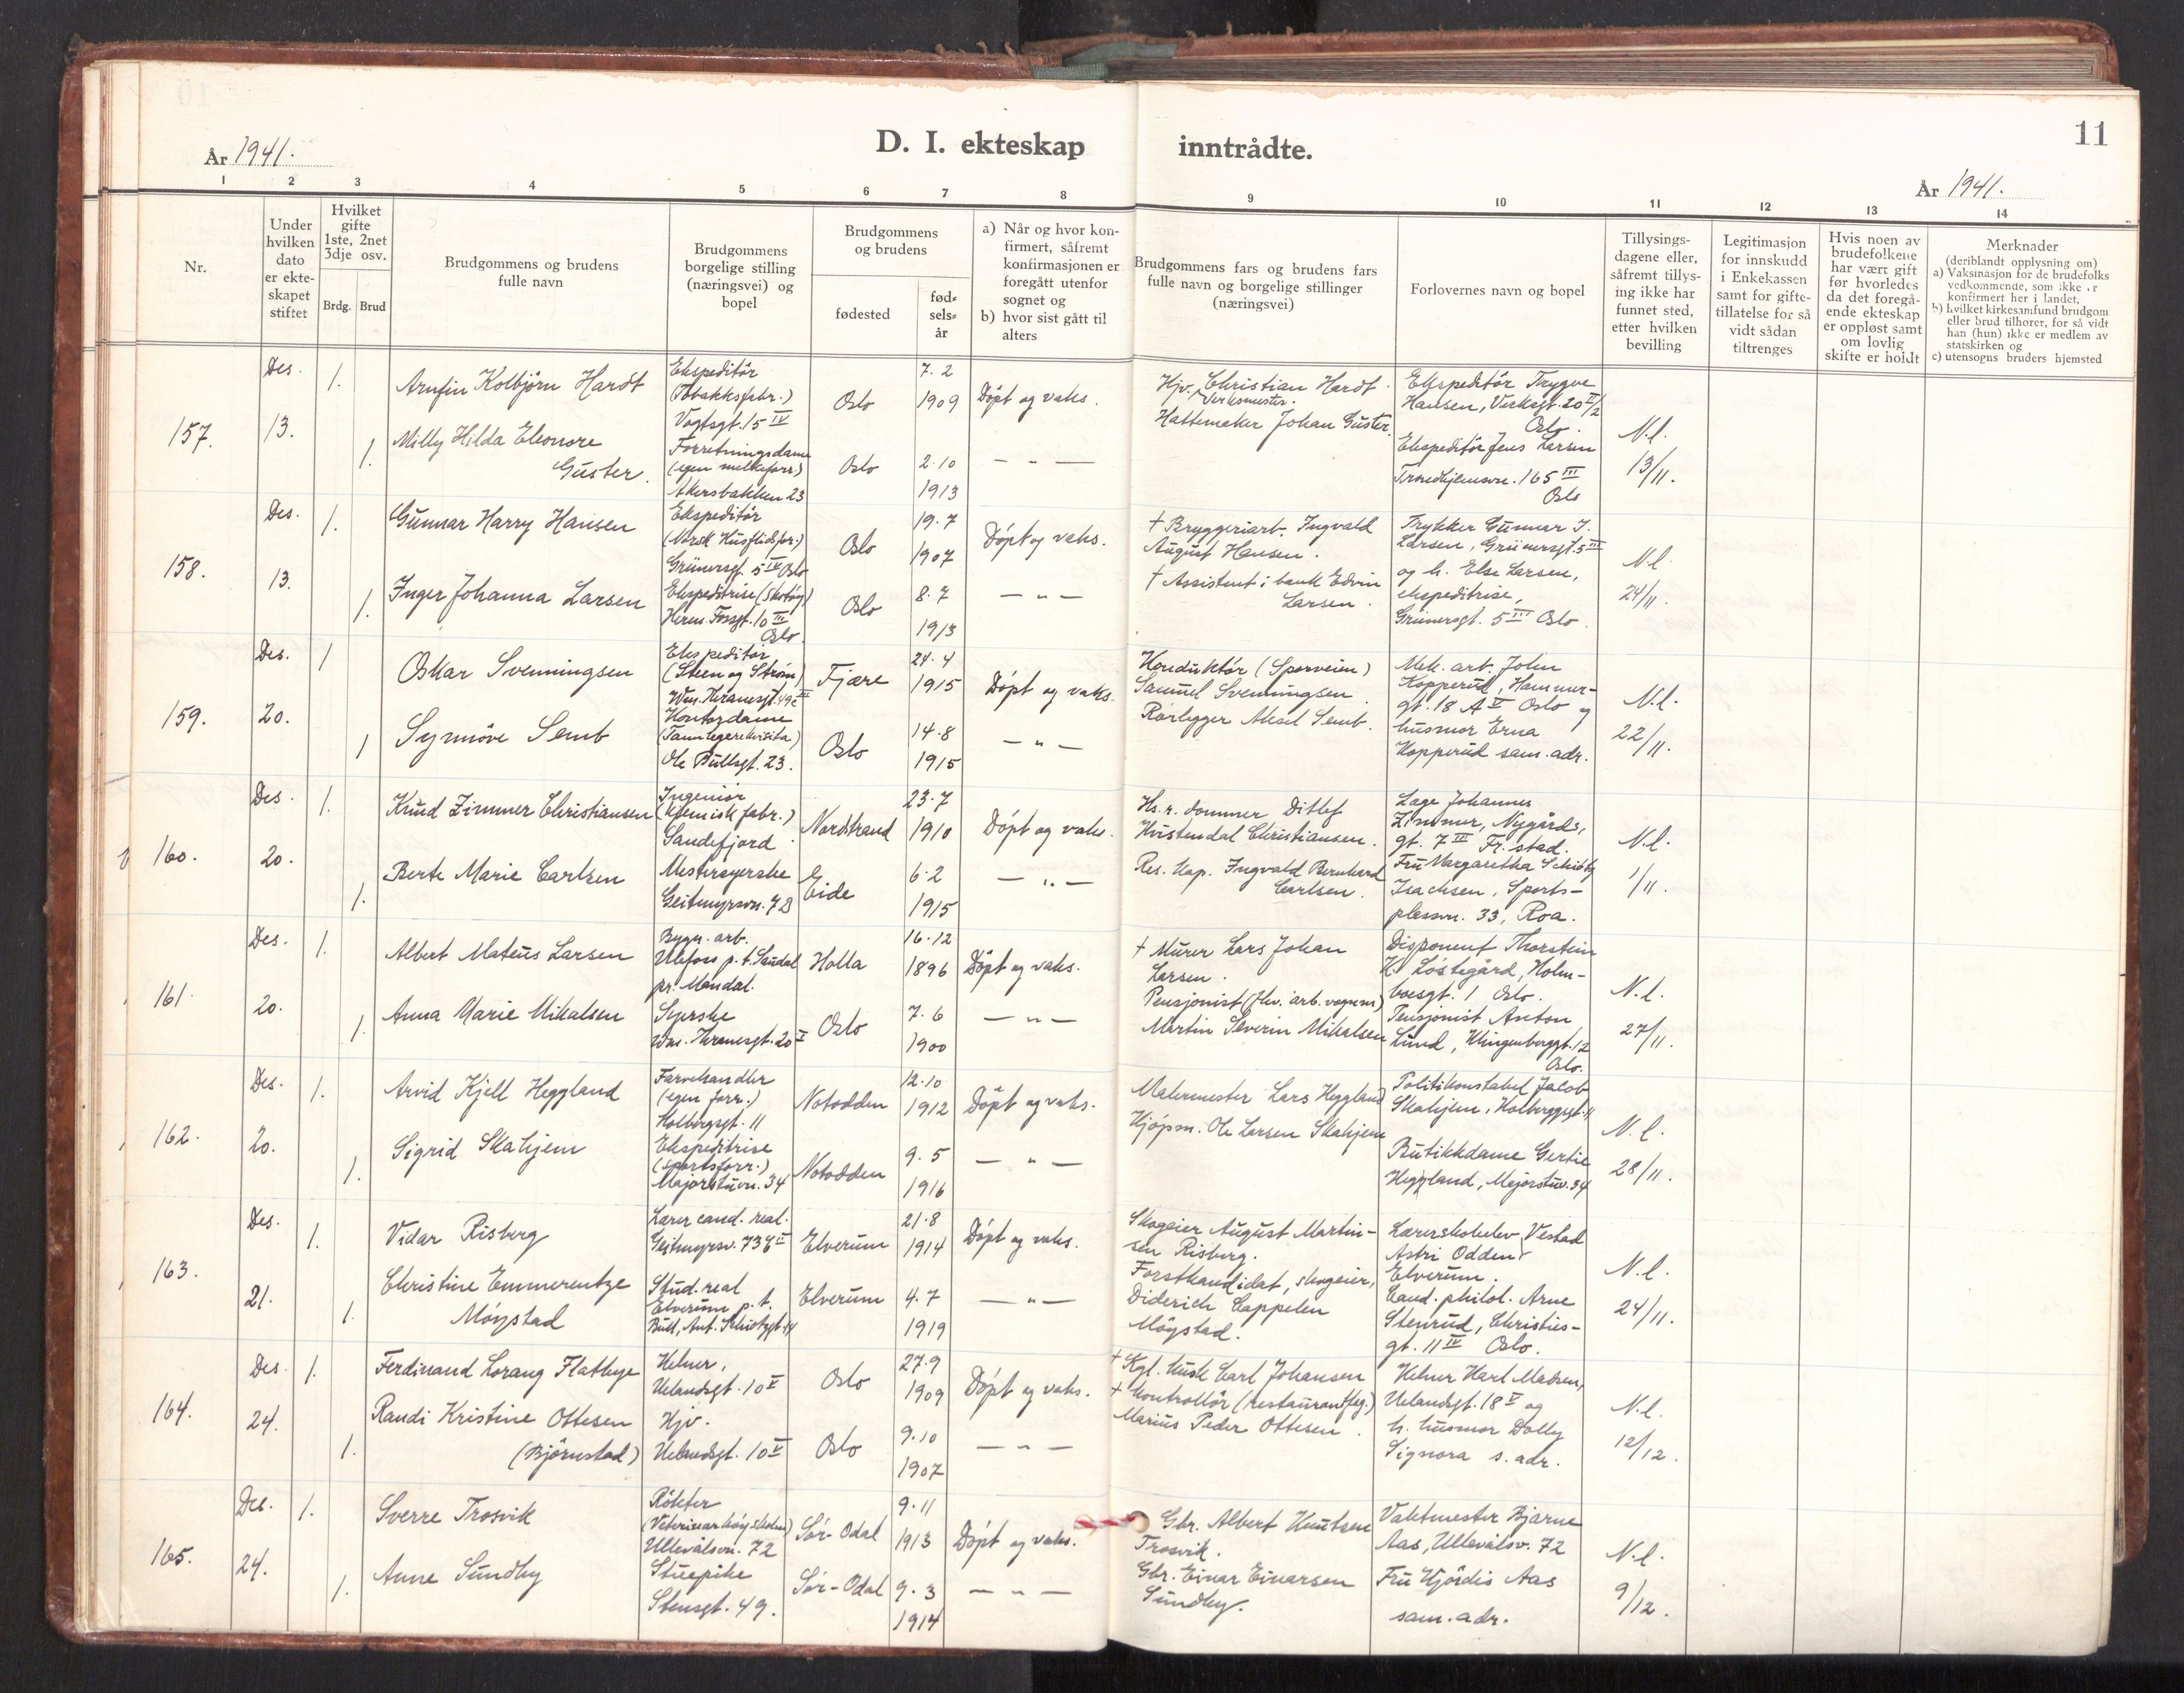 11
År 1941.
D. I. ekteskap inntrådte.
År 1941.
1 2 3 4 5 6 7 8 9 10 11 12 13 14
Nr.
Under
hvilken
dato
er ekte-
skapet
stiftet
Hvilket
gifte
1ste, 2net
3dje osv.
Brdg. Brud
Brudgommens og brudens
fulle navn
Brudgommens
borgelige stilling
(næringsvei) og
bopel
Brudgommens
og brudens
fødested
fød-
sels-
år
a) Når og hvor kon-
firmert, såfremt
konfirmasjonen er
foregått utenfor
sognet og
b) hvor sist gått til
alters
Brudgommens fars og brudens fars
fulle navn og borgelige stillinger
(næringsvei)
Forlovernes navn og bopel
Tillysings-
dagene eller,
såfremt tillys-
ing ikke har
funnet sted,
etter hvilken
bevilling
Legitimasjon
for innskudd
i Enkekassen
samt for gifte-
tillatelse for så
vidt sådan
tiltrenges
Hvis noen av
brudefolkene
har vært gift
før hvorledes
da det foregå-
ende ekteskap
er oppløst samt
om lovlig
skifte er holdt
Merknader
(deriblandt opplysning om)
a) Vaksinasjon for de brudefolks
vedkommende, som ikke er
konfirmert her i landet,
b) hvilket kirkesamfund brudgom
eller brud tilhører, for så vidt
han (hun) ikke er medlem av
statskirken og
c) utensogns bruders hjemsted
157.
Des.
13.
1.
Arnfin Kolbjörn Hardt
Ekspeditör
(Tobakksfabr.)
Vogtsgt. 15 IV
Oslo
7.2
1909
Döpt og vaks.
Hjv. Christian Hardt.
Verksmester.
1.
Milly Hilda Eleonore
Guster.
Forretningsdame
(egen melkeforr.)
Akersbakken 23
Oslo
2.10
1913
— " —
Hattemaker Johan Guster.
Ekspeditör Trygve
Hansen, Verksgt. 20 II/2
Oslo.
Ekspeditör Jens Larsen
Trondhjemsvn. 165 III
Oslo
N.l.
13/11.
158.
Des.
13.
1.
Gunnar Harry Hansen
Ekspeditör
(Norsk Husflidsfor.)
Grünersgt. 5 IV Oslo
Oslo
19.7
1907
Döpt og vaks.
† Bryggeriarb. Ingvald
August Hansen.
1.
Inger Johanna Larsen
Ekspeditrise (Skotöy)
Herm. Fossgt. 10 III
Oslo.
Oslo
8.7
1913
— " —
† Assistent i bank Edvin
Larsen.
Trykker Gunnar J.
Larsen, Grünersgt. 5 III
og h. Else Larsen,
ekspeditrise,
Grünersgt. 5 III Oslo.
N.l.
24/11.
159.
Des.
20.
1
Oskar Svenningsen
Ekspeditör
(Steen og Ström)
Wm. Thranesgt. 49c III
Fjære
24.4
1915
Döpt og vaks.
Konduktör (Sporveien)
Samuel Svenningsen.
1
Synnöve Semb
Kontordame
(Tannlegerekvisita)
Ole Bullsgt. 23.
Oslo
14.8
1915
— " —
Rörlegger Aksel Semb.
Mek. arb. John
Kopperud, Hammer-
gt. 18 A V Oslo og
husmor Erna
Kopperud sam. adr.
N.l.
22/11.
160.
Des.
20.
1.
Knud Zimmer Christiansen
Ingeniör
(kjemisk fabr.)
Sandefjord.
Nordstrand
23.7
1910
Döpt og vaks.
Hs.r. dommer Ditlef
Hvistendal Christiansen.
1.
Berte Marie Carlsen
Mestersyerske
Geitmyrsvn. 7B
Eide
6.2
1915
— " —
Res. Kap. Ingvald Bernhard
Carlsen.
Læge Johannes
Zimmer, Nygårds,
gt. 7 III Fr.stad.
Fru Margaretha Schiötz
Isachsen, Sports-
plassvn. 33, Roa.
N.l.
1/11.
161.
Des.
20.
1.
Albert Mateus Larsen
Bygn. arb.
Ulefoss p.t. Laudal
pr. Mandal.
Holla
16.12
1896
Döpt og vaks.
† Murer Lars Johan
Larsen.
1.
Anna Marie Mikalsen
Syerske
Wm. Thranesgt. 20 I
Oslo
7.6
1900
— " —
Pensjonist (fhv. arb. vognm)
Martin Severin Mikalsen
Disponent Thorstein
K. Löstegård, Holm-
boesgt. 1 Oslo.
Pensjonist Anton
Lund, Klingenberggt. 12
Oslo.
N.l.
27/11.
162.
Des.
20.
1.
Arvid Kjell Heggland
Farvehandler
(egen forr.)
Holbergsgt. 11
Notodden
12.10
1912
Döpt og vaks.
Malermester Lars Heggland
1.
Sigrid Skahjem
Ekspeditrise
(sportsforr.)
Majorstuvn. 34
Notodden
9.5
1916
— " —
Kjöpm. Ole Larsen Skahjem
Politikonstabel Jacob
Skahjem, Holbergsgt. 11
Butikkdame Gertie
Heggland, Majorstuv. 34
N.l.
28/11.
163.
Des.
21.
1.
Vidar Risberg
Lærer cand. real.
Geitmyrsv. 73 II
Elverum
21.8
1914
Döpt og vaks.
Skogeier August Martin-
sen Risberg.
1.
Christine Emmerentze
Möystad
Stud. real
Elverum p.t.
Bull, Ant. Schiötzgt. 14
Elverum
4.7
1919
— " —
Forstkandidat, skogeier,
Diderich Cappelen
Möystad.
Lærerskoleelev Vestad
Astri Odden
Elverum.
Cand. philol. Arne
Stenrud, Christies-
gt. 11 IV Oslo.
N.l.
24/11.
164.
Des.
24.
1.
Ferdinand Lorang Flathye
Kelner,
Uelandsgt. 10 V
Oslo
27.9
1909
Döpt og vaks.
† Kgl. kusk Carl Johansen
1.
Randi Kristine Ottesen
(Björnstad)
Hjv.
Uelandsgt. 10 V
Oslo
9.10
1907
— " —
† Kontrollör (restaurantfag.)
Marius Peder Ottesen.
Kelner Karl Madsen,
Uelandsgt. 18 V og
h. husmor Dolly
Signora s. adr.
N.l.
12/12.
165.
Des.
24.
1.
Sverre Trosvik
Rökter
(Veterinærhöyskolen)
Ullevålsvn. 72
Sör-Odal
9.11
1913
Döpt og vaks.
Gbr. Albert Knutsen
Trosvik.
1.
Anne Sundby
Stuepike
Stensgt. 49.
Sör-Odal
9.3
1914
— " —
Gbr. Einar Einarsen
Sundby.
Vaktmester Bjarne
Aas, Ullevålsv. 72
Fru Hjördis Aas
sam. adr.
N.l.
9/12.